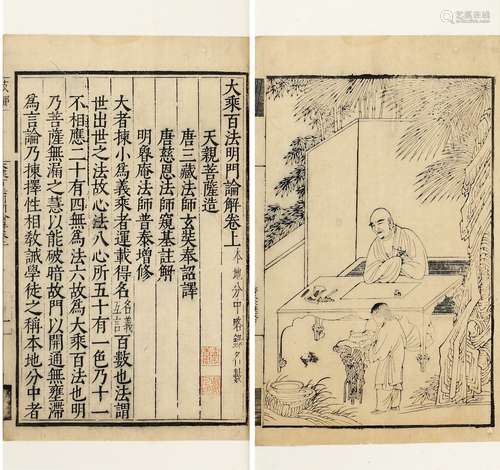 大乘百法明門論解卷上本地分中略錄名數
天親菩薩造
唐三藏法師玄奘奉詔譯
唐慈恩法師窺基註解
明魯庵法師普泰增修
大者揀小為義乘者運載得名名義互言百數也法謂
世出世之法故心法八心所五十有一色乃十一
不相應二十有四無為法六故為大乘百法也明
乃菩薩無漏之慧以能破暗故門以開通無壅滯
為言論乃揀擇性相敎誡學徒之稱本地分中者
艺狐在线